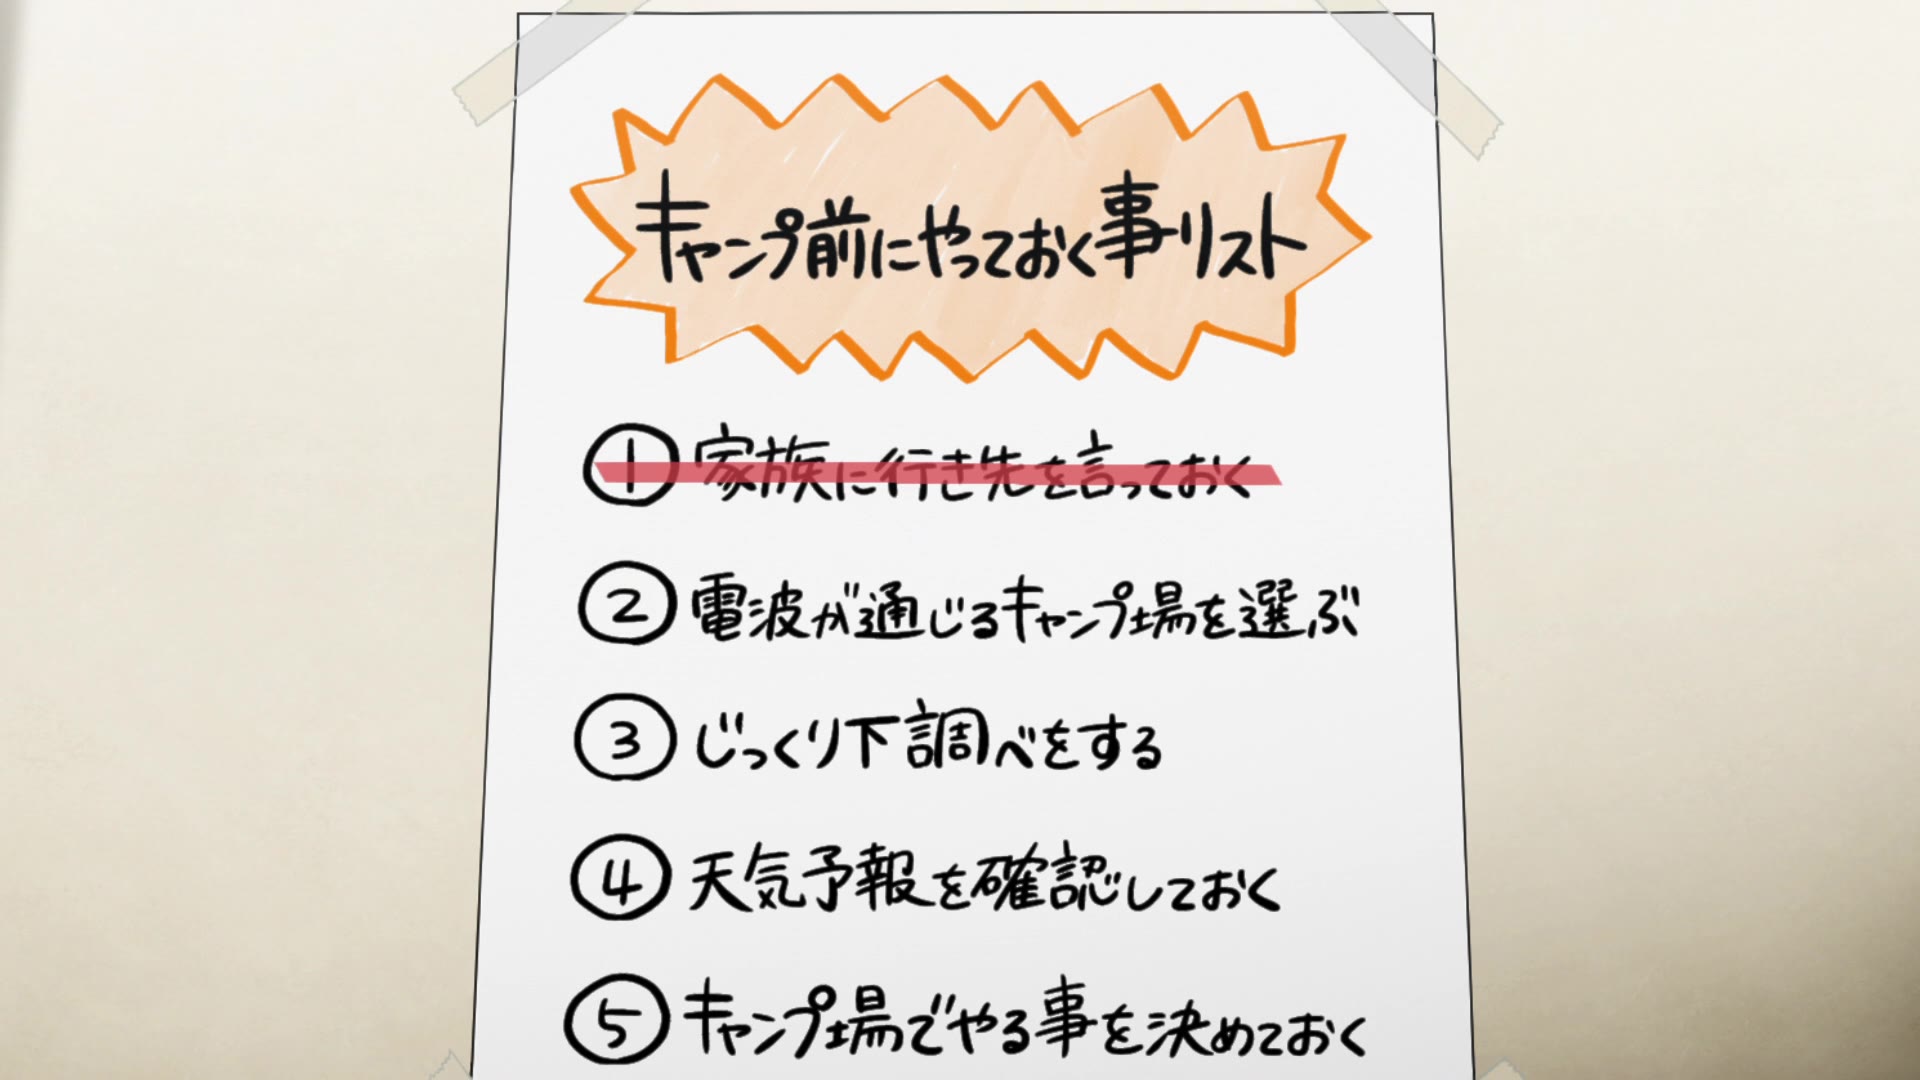 キャンプ前にやっておく事リスト
① 家族に行き先を言っておく
② 電波が通じるキャンプ場を選ぶ
③ じっくり下調べをする
④ 天気予報を確認しておく
⑤ キャンプ場でやる事を決めておく